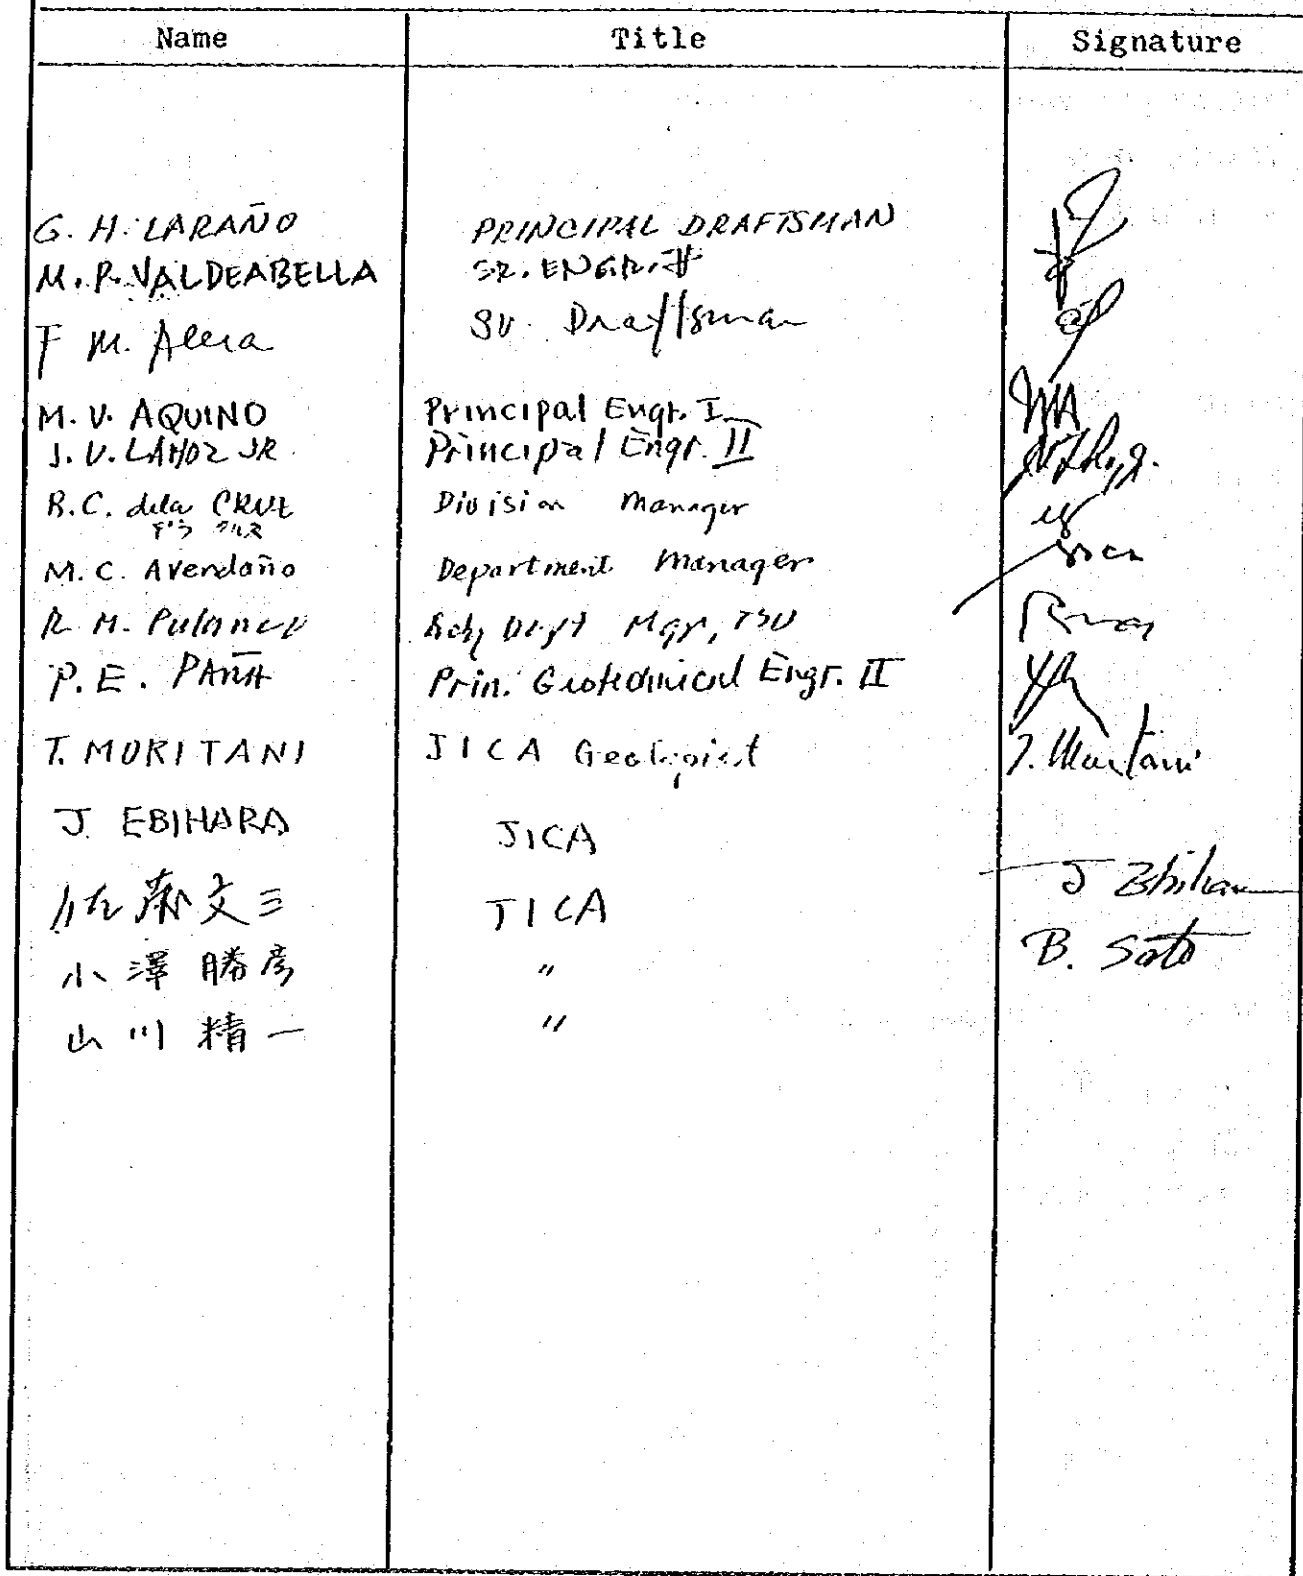 Name Title Signature
G. H. LARAÑO PRINCIPAL DRAFTSMAN
M. R. VALDEABELLA SR. ENGR.
F M. Draftsman
M. V. AQUINO Principal Engr. I
J. V. LAHOZ JR Principal Engr. II
R.C. dela CRUZ Division Manager
デラ クルス
M. C. Avendaño Department Manager
R. M. Mgr, TSD
P. E. Prin. Geotechnical Engr. II
T. MORITANI JICA Geologist T. Moritani
J. EBIHARA JICA
J Ebihara
佐藤文三 JICA
B. Sato
小澤 勝彦 〃
山川 精一 〃